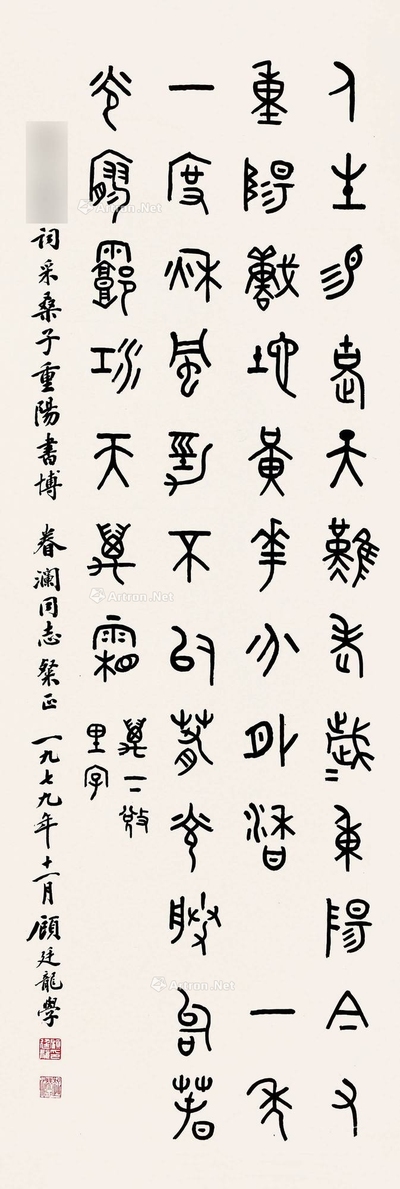 人生易老天難老歲=重陽今又
重陽戰地黃華分外香 一年
一度秋風勁不似春光勝似春
光寥廓江天萬霜
萬下敓
里字
詞采桑子重陽書博 春瀾同志粲正 一九七九年十一月顧廷龍學
Artron.Net
Artron.Net
Artron.Net